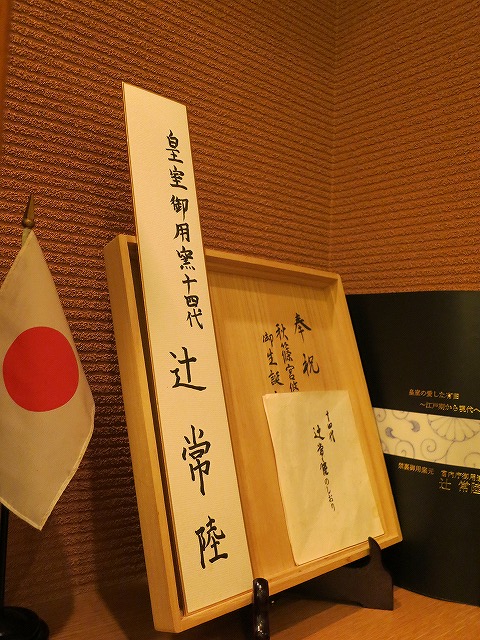 皇室御用窯十四代
辻常陸
奉祝
秋篠宮
御生誕
十四代
辻常陸のしおり
皇室の愛した有田
～江戸期から現代へ
禁裏御用窯元
宮内庁御用達
辻常陸